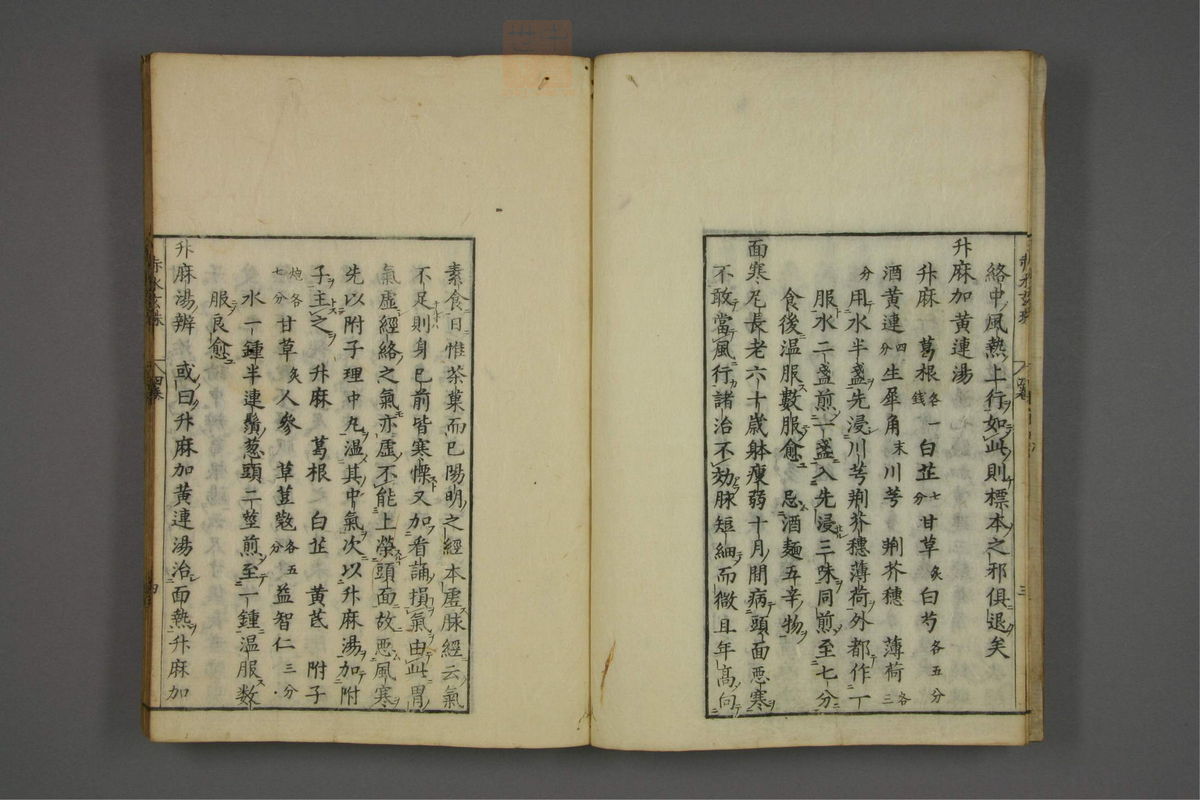 絡中風熱上行如此則標本之邪俱退矣
升麻加黃連湯
升麻 葛根各一錢 白芷七分 甘草炙 白芍各五分
酒黃連四分 生犀角末 川芎 荆芥穗 薄荷各三
分用水半盞先浸川芎荆芥穗薄荷外都作一
服水二盞煎一盞入先浸三味同煎至七分
食後温服數服愈 忌酒麵五辛物
面寒尼長老六十歲躰瘦弱十月間病頭面惡寒
不敢當風行諸治不効脉短細而微且年髙向
素食日惟茶菓而已陽明之經本虛脉經云氣
不足則身已前皆寒慄又加看誦損氣由此胃
氣虛經絡之氣亦虛不能上榮頭面故惡風寒
先以附子理中丸温其中氣次以升麻湯加附
子主之升麻 葛根 白芷 黃芪 附子
炮各七分 甘草炙 人參 草荳蔻各五分 益智仁三分
水一鍾半連鬚葱頭二莖煎至一鍾温服数
服良愈
升麻湯辨 或曰升麻加黃連湯治面熱升麻加
赤水玄珠
四